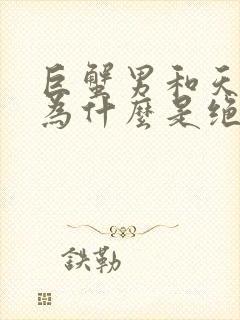 巨蟹男和天
為什麼是绝
鉄勒